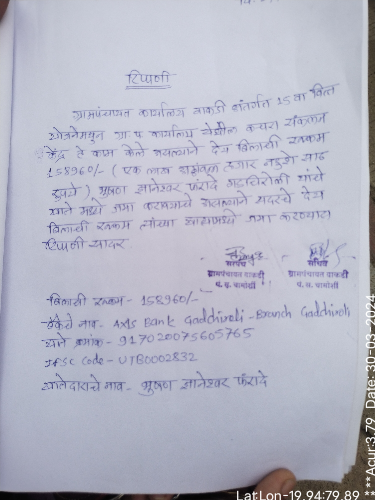 टिपणी
ग्रामपंचायत कार्यालय वाकडी अंतर्गत 15 वा वित्त
योजनेमधून ग्रा प कार्यालय येथील कचरा संकलन
केंद्र हे काम केले असल्याने देय बिलाची रक्कम
158960/- ( एक लाख अठ्ठावन हजार नऊशे साठ
रुपये ) भुषण ज्ञानेश्वर फरादे गडचिरोली यांचे
खाते मध्ये जमा करावयाचे असल्याने सदरचे देय
बिलाची रक्कम त्यांच्या खात्यामध्ये जमा करण्यात
टिपणी सादर
सरपंच
ग्रामपंचायत वाकडी
पं. स. चामोर्शी
सचिव
ग्रामपंचायत वाकडी
पं. स. चामोर्शी
बिलाची रक्कम - 158960/-
बँकेचे नाव - Axis Bank Gadchiroli - Branch Gadchiroli
खाते क्रमांक - 917020075605765
IFSC Code - UTB0002832
खातेदाराचे नाव - भुषण ज्ञानेश्वर फरादे
LatLon-19.94:79.89
***Acur:3.79 Date: 30-03-2024